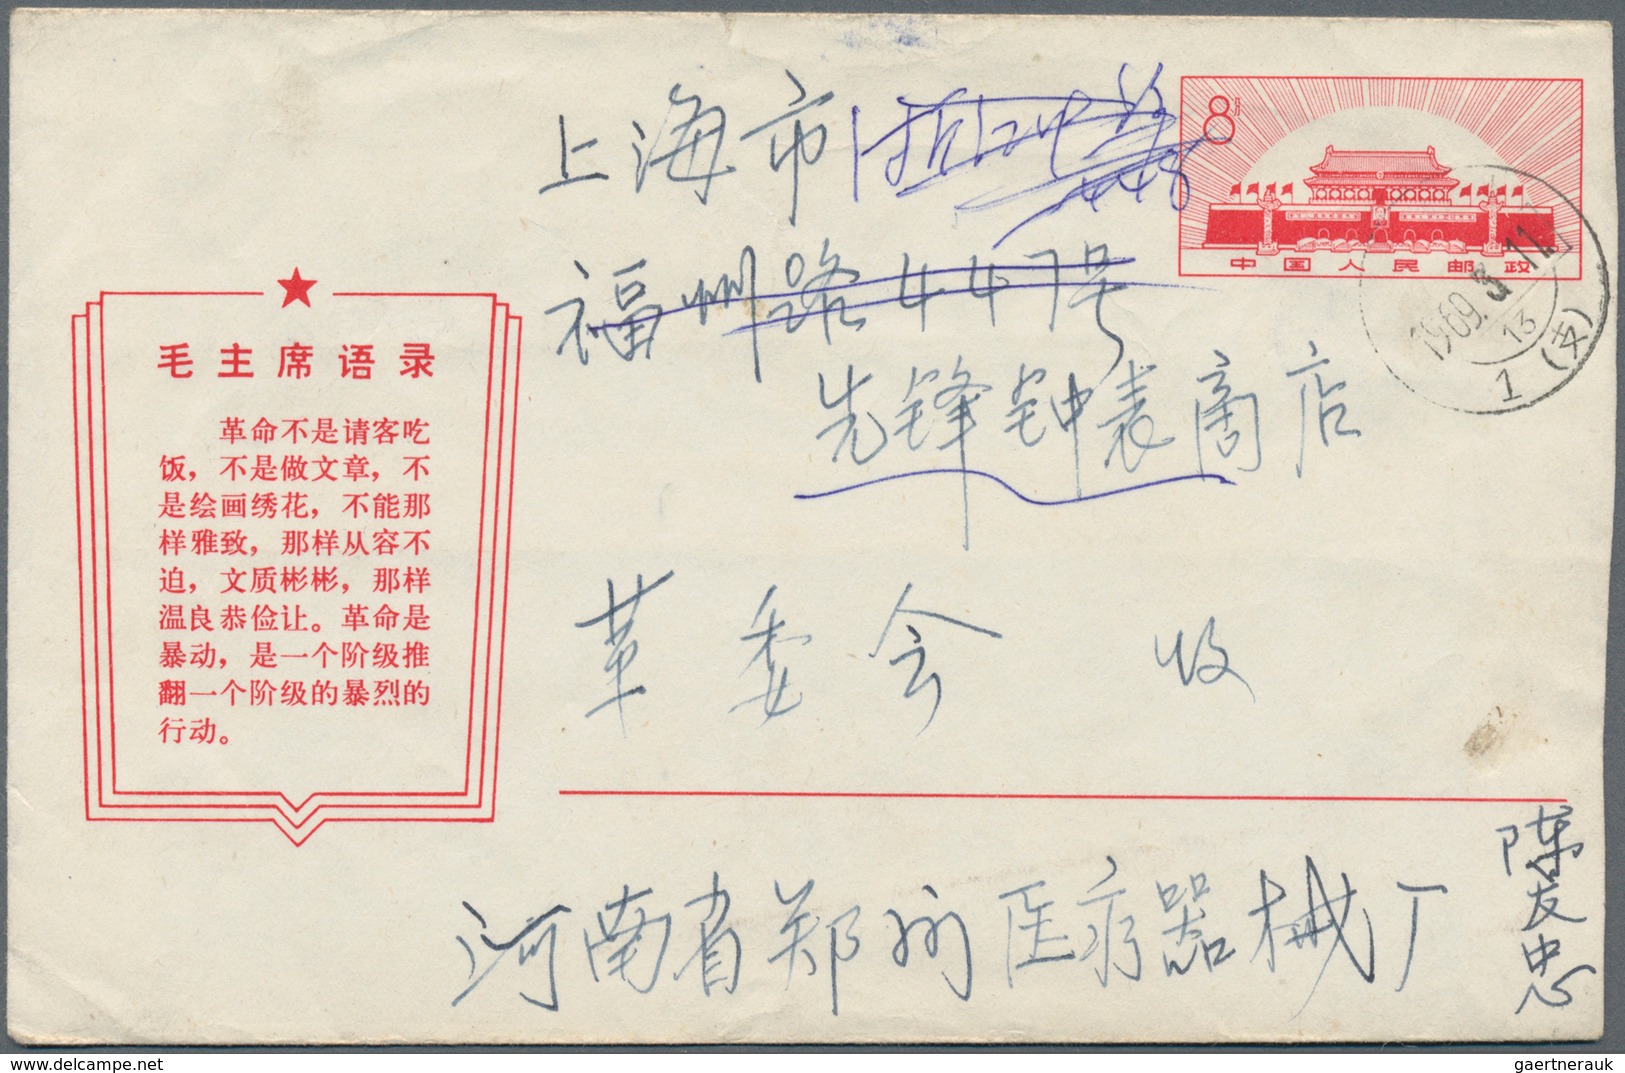 上海市
8分
中国人民邮政
福州路447号
先锋钟表商店
1969.3.11
13
1 (支)
毛主席语录
革命不是请客吃
饭，不是做文章，不
是绘画绣花，不能那
样雅致，那样从容不
迫，文质彬彬，那样
温良恭俭让。革命是
暴动，是一个阶级推
翻一个阶级的暴烈的
行动。
革委会 收
河南省郑州医疗器械厂
陈友忠
www.philasearch.com
gaertnerauk